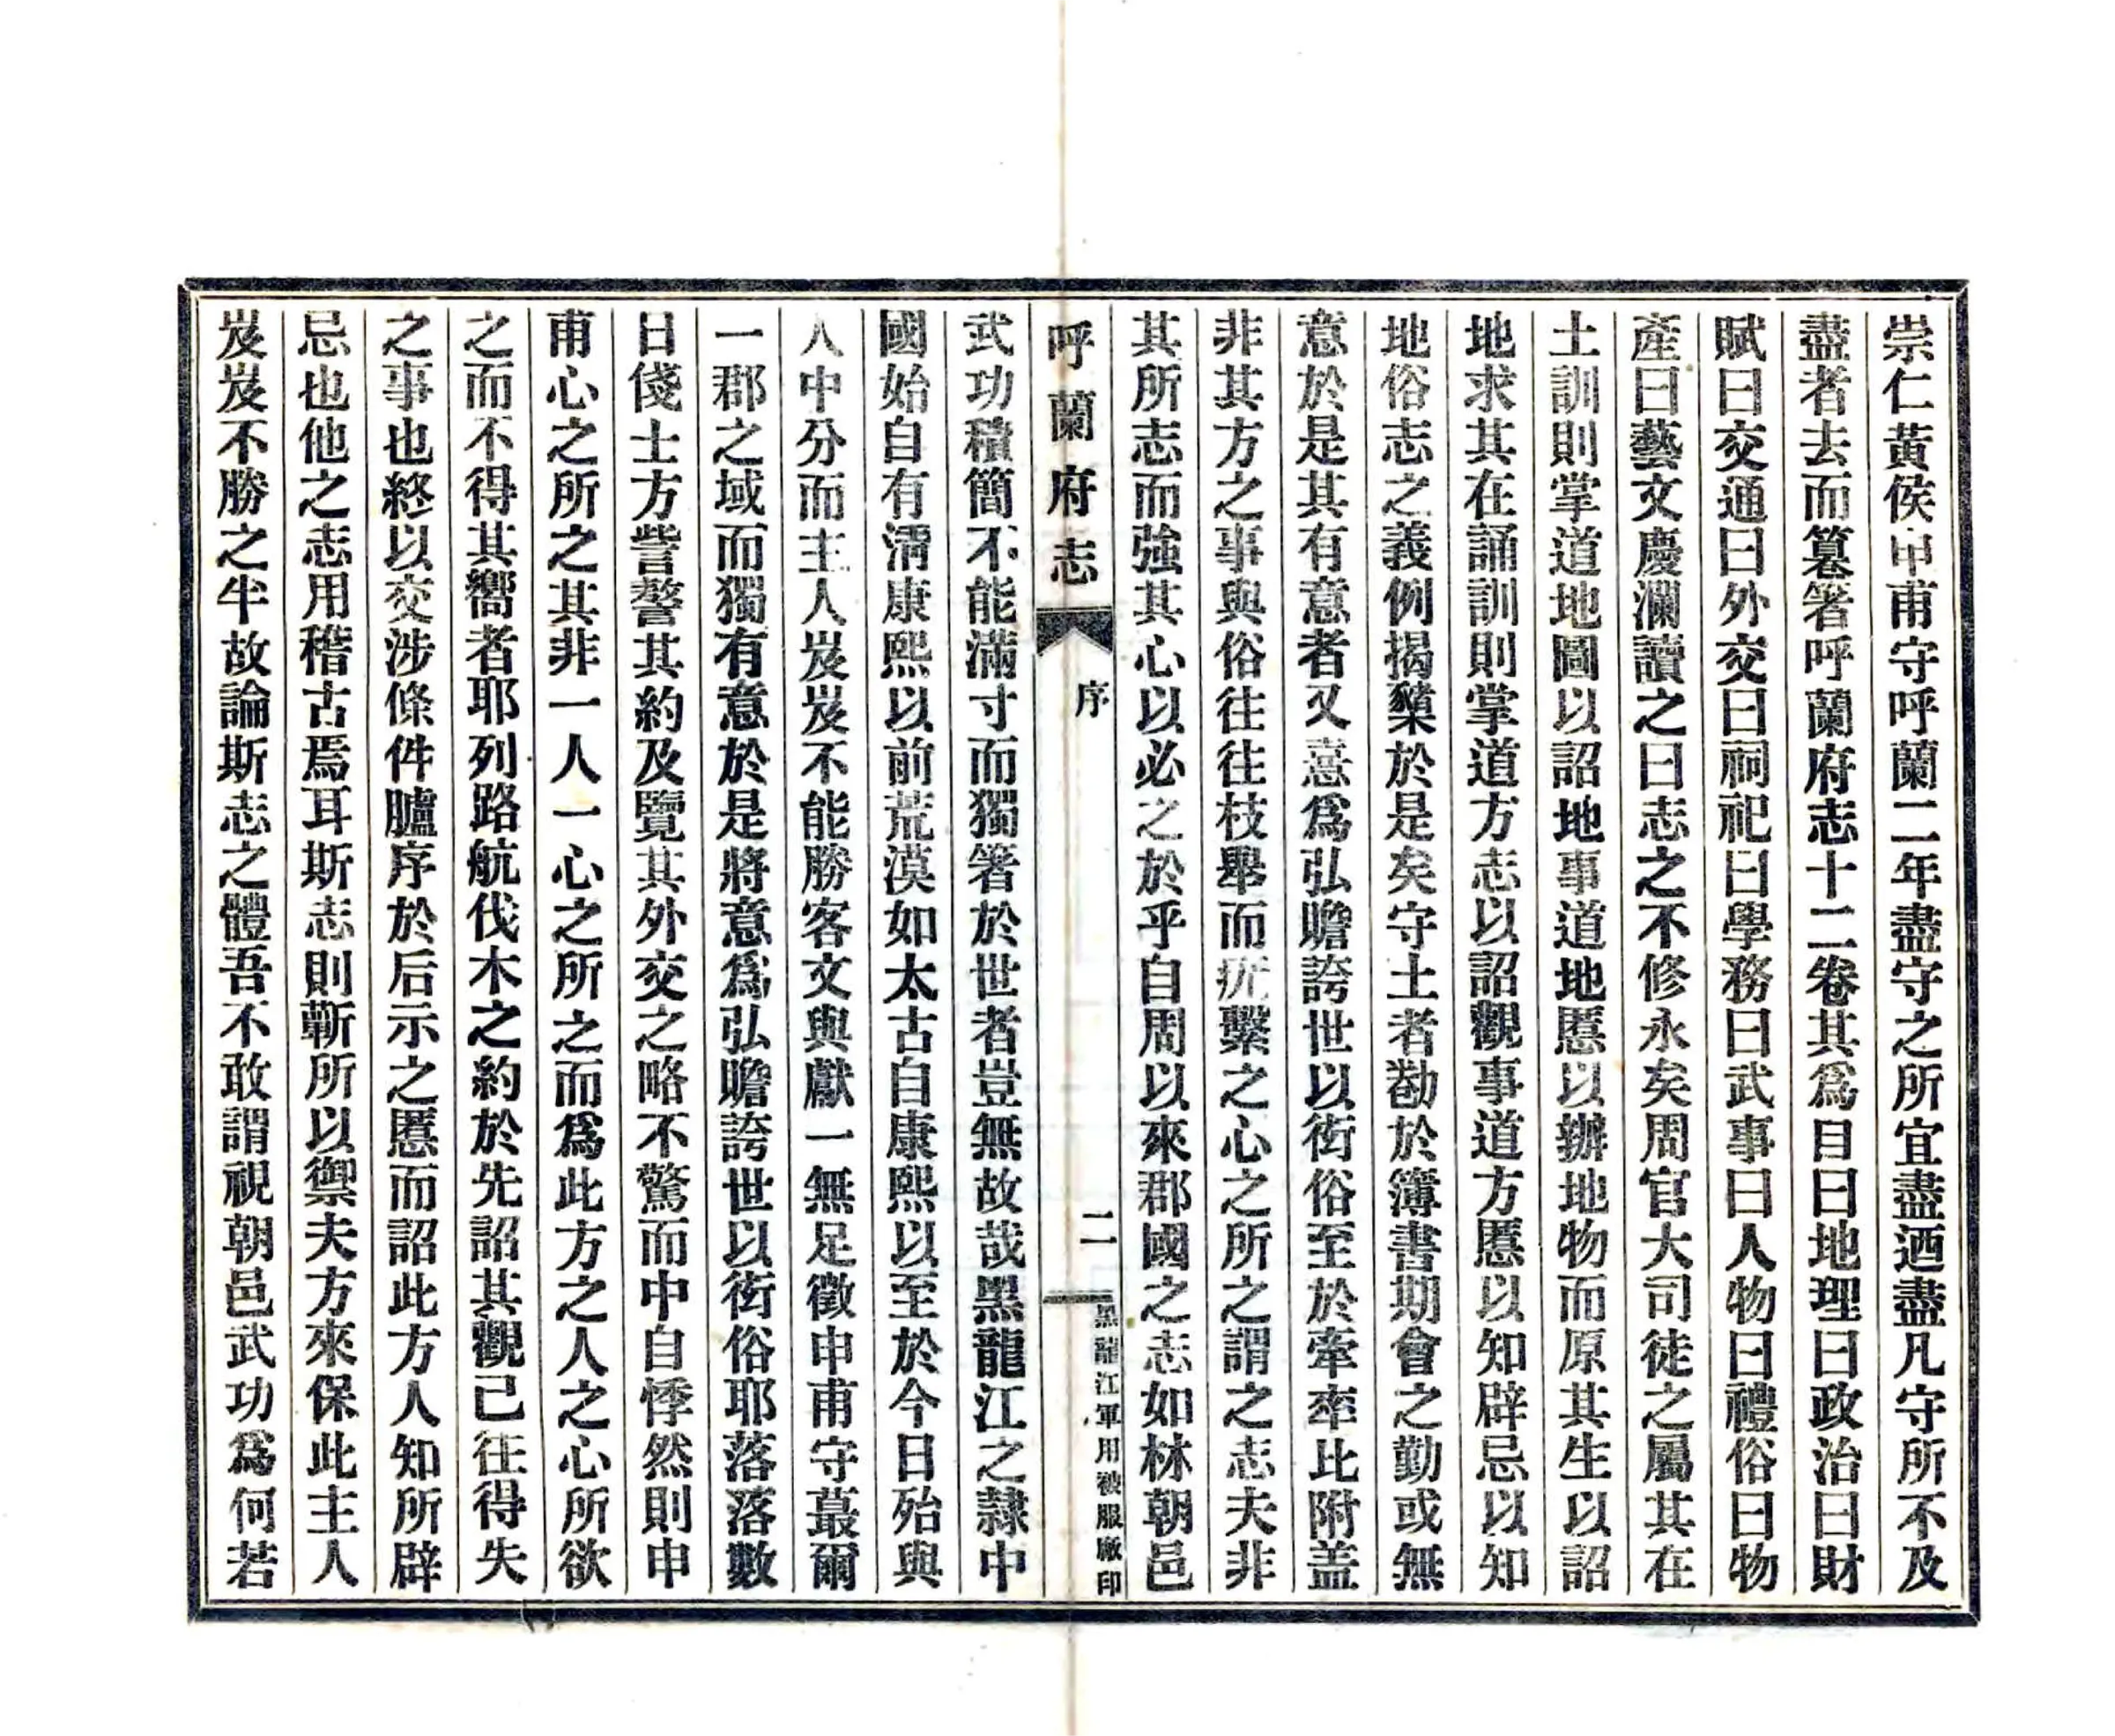 崇仁黃侯申甫守呼蘭二年盡守之所宜盡迺盡凡守所不及
盡者去而篹箸呼蘭府志十二卷其爲目曰地理曰政治曰財
賦曰交通曰外交曰祠祀曰學務曰武事曰人物曰禮俗曰物
產曰藝文慶瀾讀之曰志之不修永矣周官大司徒之屬其在
土訓則掌道地圖以詔地事道地慝以辦地物而原其生以詔
地求其在誦訓則掌道方志以詔觀事道方慝以知辟忌以知
地俗志之義例揭櫫於是矣守土者勌於簿書期會之勤或無
意於是其有意者又憙爲弘贍誇世以衒俗至於牽率比附盖
非其方之事與俗往往枝舉而疣繫之心之所之謂之志夫非
其所志而強其心以必之於乎自周以來郡國之志如林朝邑
呼蘭府志
序
二
黑龍江軍用被服廠印
武功積簡不能滿寸而獨箸於世者豈無故哉黑龍江之隷中
國始自有淸康熙以前荒漠如太古自康熙以至於今日殆與
人中分而主人岌岌不能勝客文與獻一無足徵申甫守蕞爾
一郡之域而獨有意於是將意爲弘贍誇世以衒俗耶落落數
日俴士方訾謷其約及覽其外交之略不驚而中自悸然則申
甫心之所之其非一人一心之所之而爲此方之人之心所欲
之而不得其嚮者耶列路航伐木之約於先詔其觀已往得失
之事也終以交涉條件臚序於后示之慝而詔此方人知所辟
忌也他之志用稽古焉耳斯志則蘄所以禦夫方來保此主人
岌岌不勝之半故論斯志之體吾不敢謂視朝邑武功爲何若